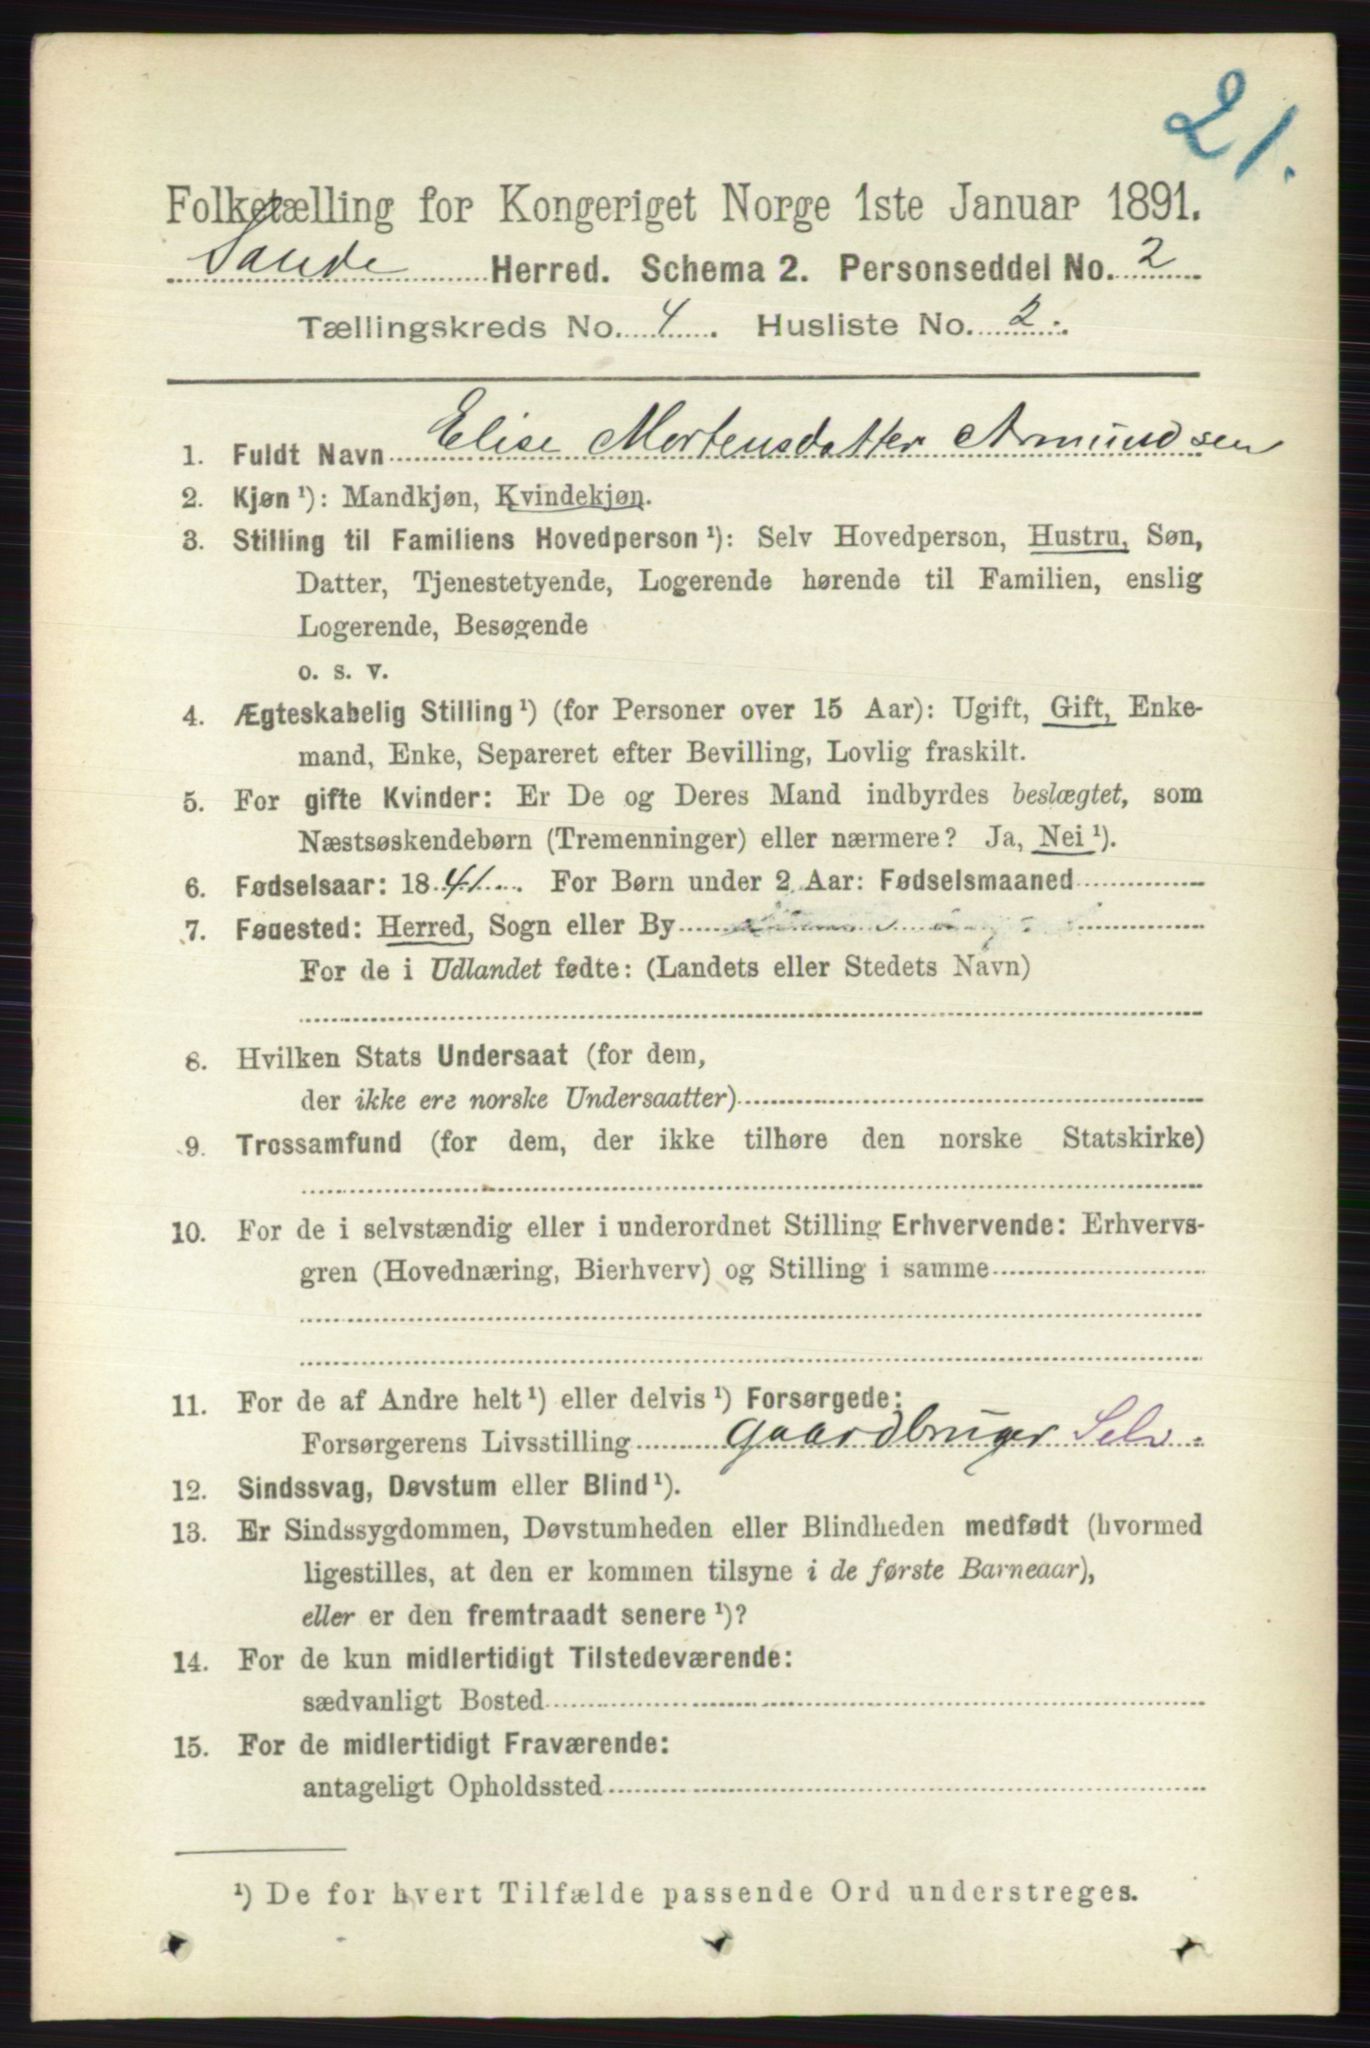 21.
Folketælling for Kongeriget Norge 1ste Januar 1891.
Sande Herred. Schema 2. Personseddel No. 2
Tællingskreds No. 4. Husliste No. 2.
1. Fuldt Navn Elise Mortensdatter Amundsen
2. Kjøn ¹): Mandkjøn, Kvindekjøn.
3. Stilling til Familiens Hovedperson ¹): Selv Hovedperson, Hustru, Søn,
Datter, Tjenestetyende, Logerende hørende til Familien, enslig
Logerende, Besøgende
o. s. v.
4. Ægteskabelig Stilling ¹) (for Personer over 15 Aar): Ugift, Gift, Enke-
mand, Enke, Separeret efter Bevilling, Lovlig fraskilt.
5. For gifte Kvinder: Er De og Deres Mand indbyrdes beslægtet, som
Næstsøskendebørn (Tremenninger) eller nærmere? Ja, Nei ¹).
6. Fødselsaar: 1841. For Børn under 2 Aar: Fødselsmaaned
7. Fødested: Herred, Sogn eller By
For de i Udlandet fødte: (Landets eller Stedets Navn)
8. Hvilken Stats Undersaat (for dem,
der ikke ere norske Undersaatter)
9. Trossamfund (for dem, der ikke tilhøre den norske Statskirke)
10. For de i selvstændig eller i underordnet Stilling Erhvervende: Erhvervs-
gren (Hovednæring, Bierhverv) og Stilling i samme
11. For de af Andre helt ¹) eller delvis ¹) Forsørgede:
Forsørgerens Livsstilling Gaardbruger Selv.
12. Sindssvag, Døvstum eller Blind ¹).
13. Er Sindssygdommen, Døvstumheden eller Blindheden medfødt (hvormed
ligestilles, at den er kommen tilsyne i de første Barneaar),
eller er den fremtraadt senere ¹)?
14. For de kun midlertidigt Tilstedeværende:
sædvanligt Bosted
15. For de midlertidigt Fraværende:
antageligt Opholdssted
¹) De for hvert Tilfælde passende Ord understreges.